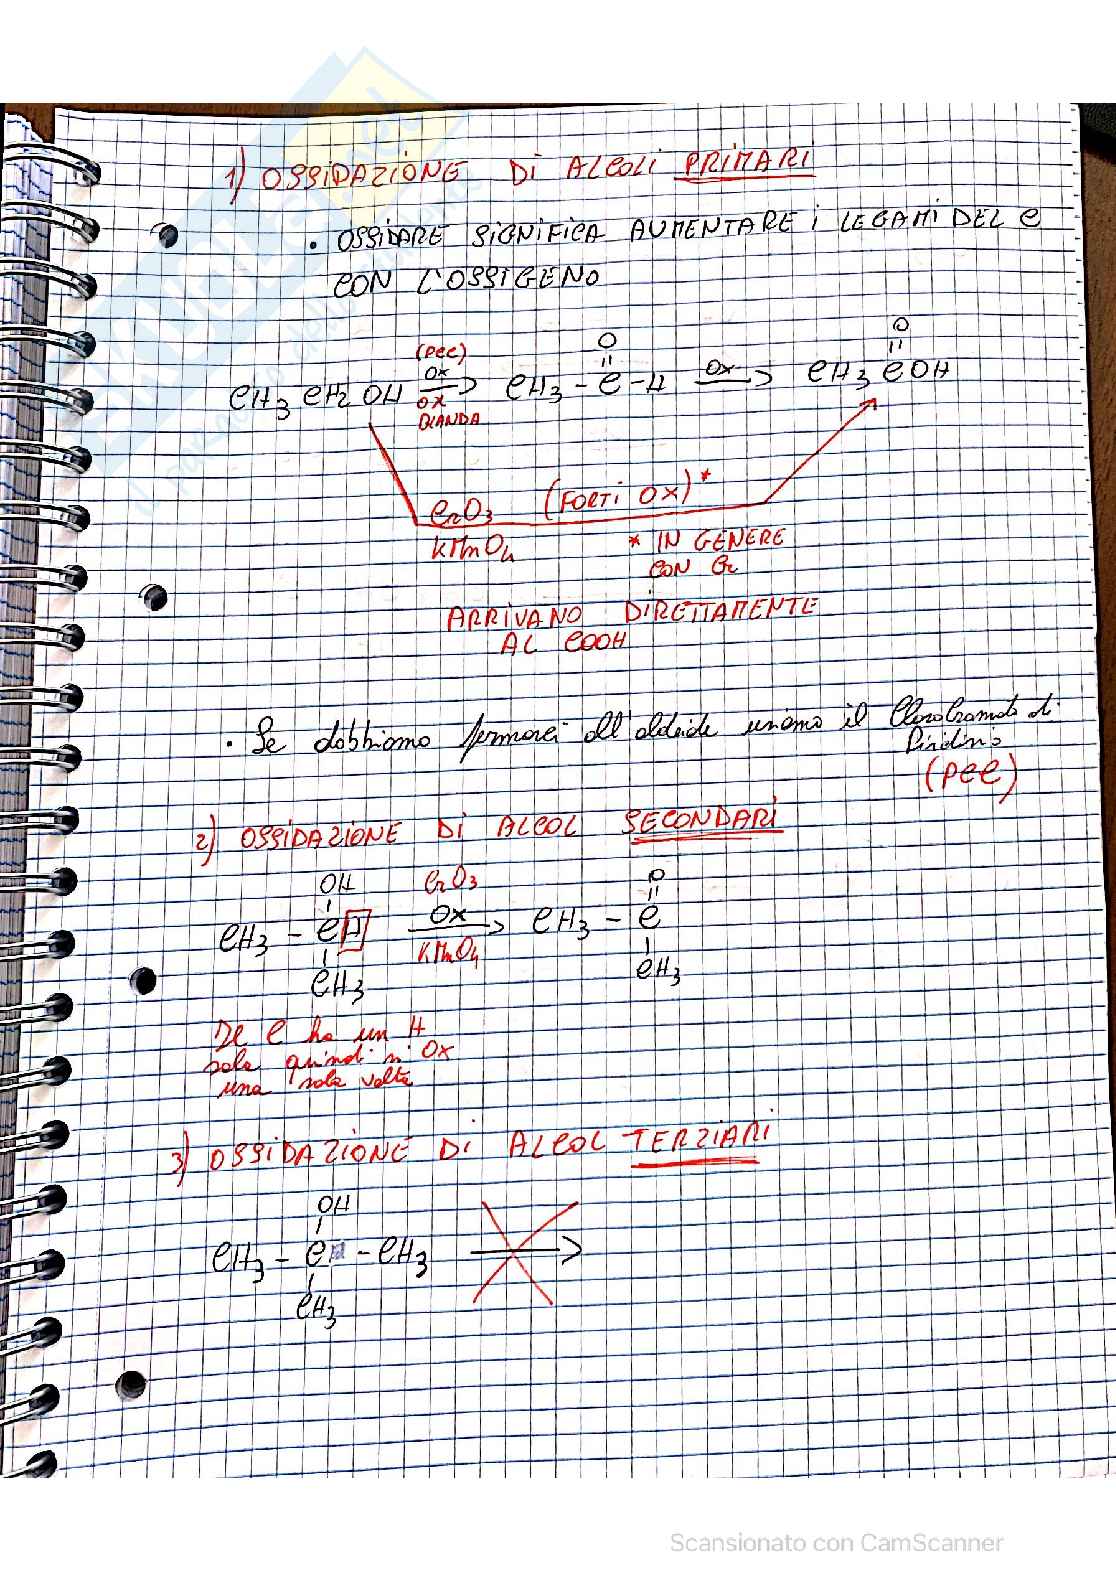 1) OSSIDAZIONE DI ALCOLI PRIMARI
• OSSIDARE SIGNIFICA AUMENTARE i LEGAMI DEL C
CON L'OSSIGENO
(PCC)
CH3 CH2 OH OX → CH3 - C - H OX → CH3 C OH
O
O
OX
BLANDA
CrO3 (FORTI OX)*
KMnO4
* IN GENERE
CON Cr
ARRIVANO DIRETTAMENTE
AL COOH
• Se dobbiamo fermarci all'aldeide usiamo il Clorocromato di
Piridinio
(PCC)
2) OSSIDAZIONE DI ALCOL SECONDARI
OH
CrO3
O
CH3 - C H OX → CH3 - C
KMnO4
CH3
CH3
Il C ha un H
solo quindi si OX
una sola volta
3) OSSIDAZIONE DI ALCOL TERZIARI
OH
CH3 - C - CH3 →
CH3
Scansionato con CamScanner